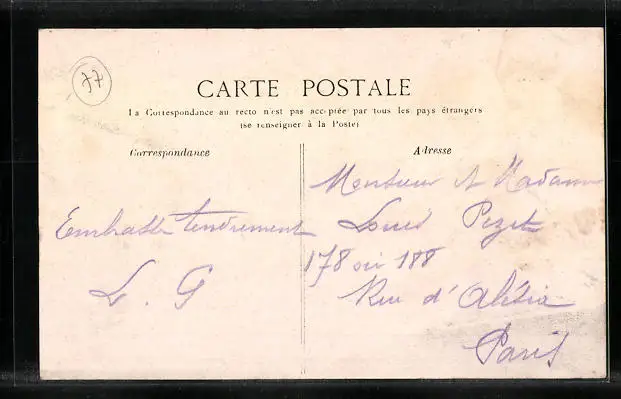 77
CARTE POSTALE
La Correspondance au recto n'est pas acceptée par tous les pays étrangers
(se renseigner à la Poste)
Correspondance
Adresse
Embrasse tendrement
L. G
Monsieur et Madame
Louis Pezet
178 ou 188
Rue d'Alésia
Paris